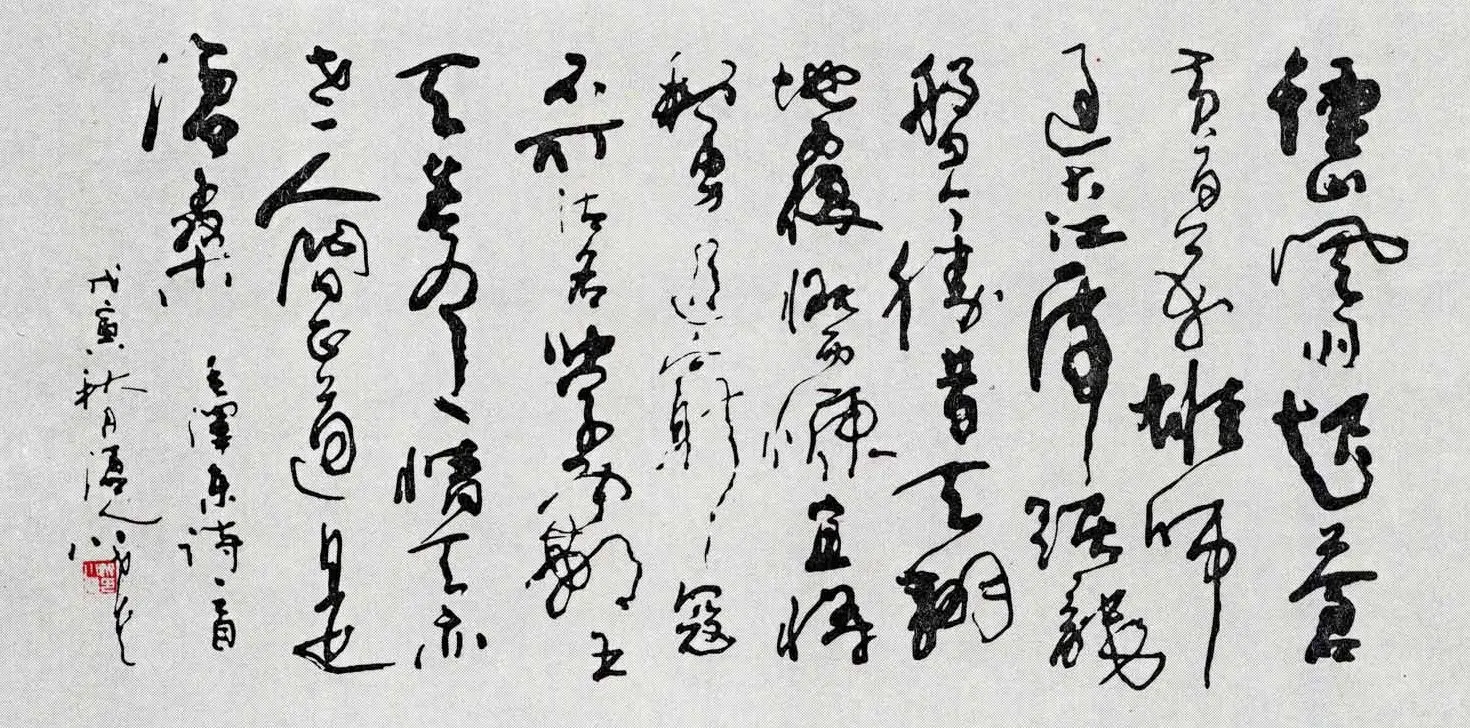 鍾山風雨起蒼
黃百萬雄師
過大江虎踞龍
盤今勝昔天翻
地覆慨而慷宜將
剩勇追窮寇
不可沽名學霸王
天若有情天亦
老人間正道是
滄桑
毛澤東詩一首
戊寅秋月